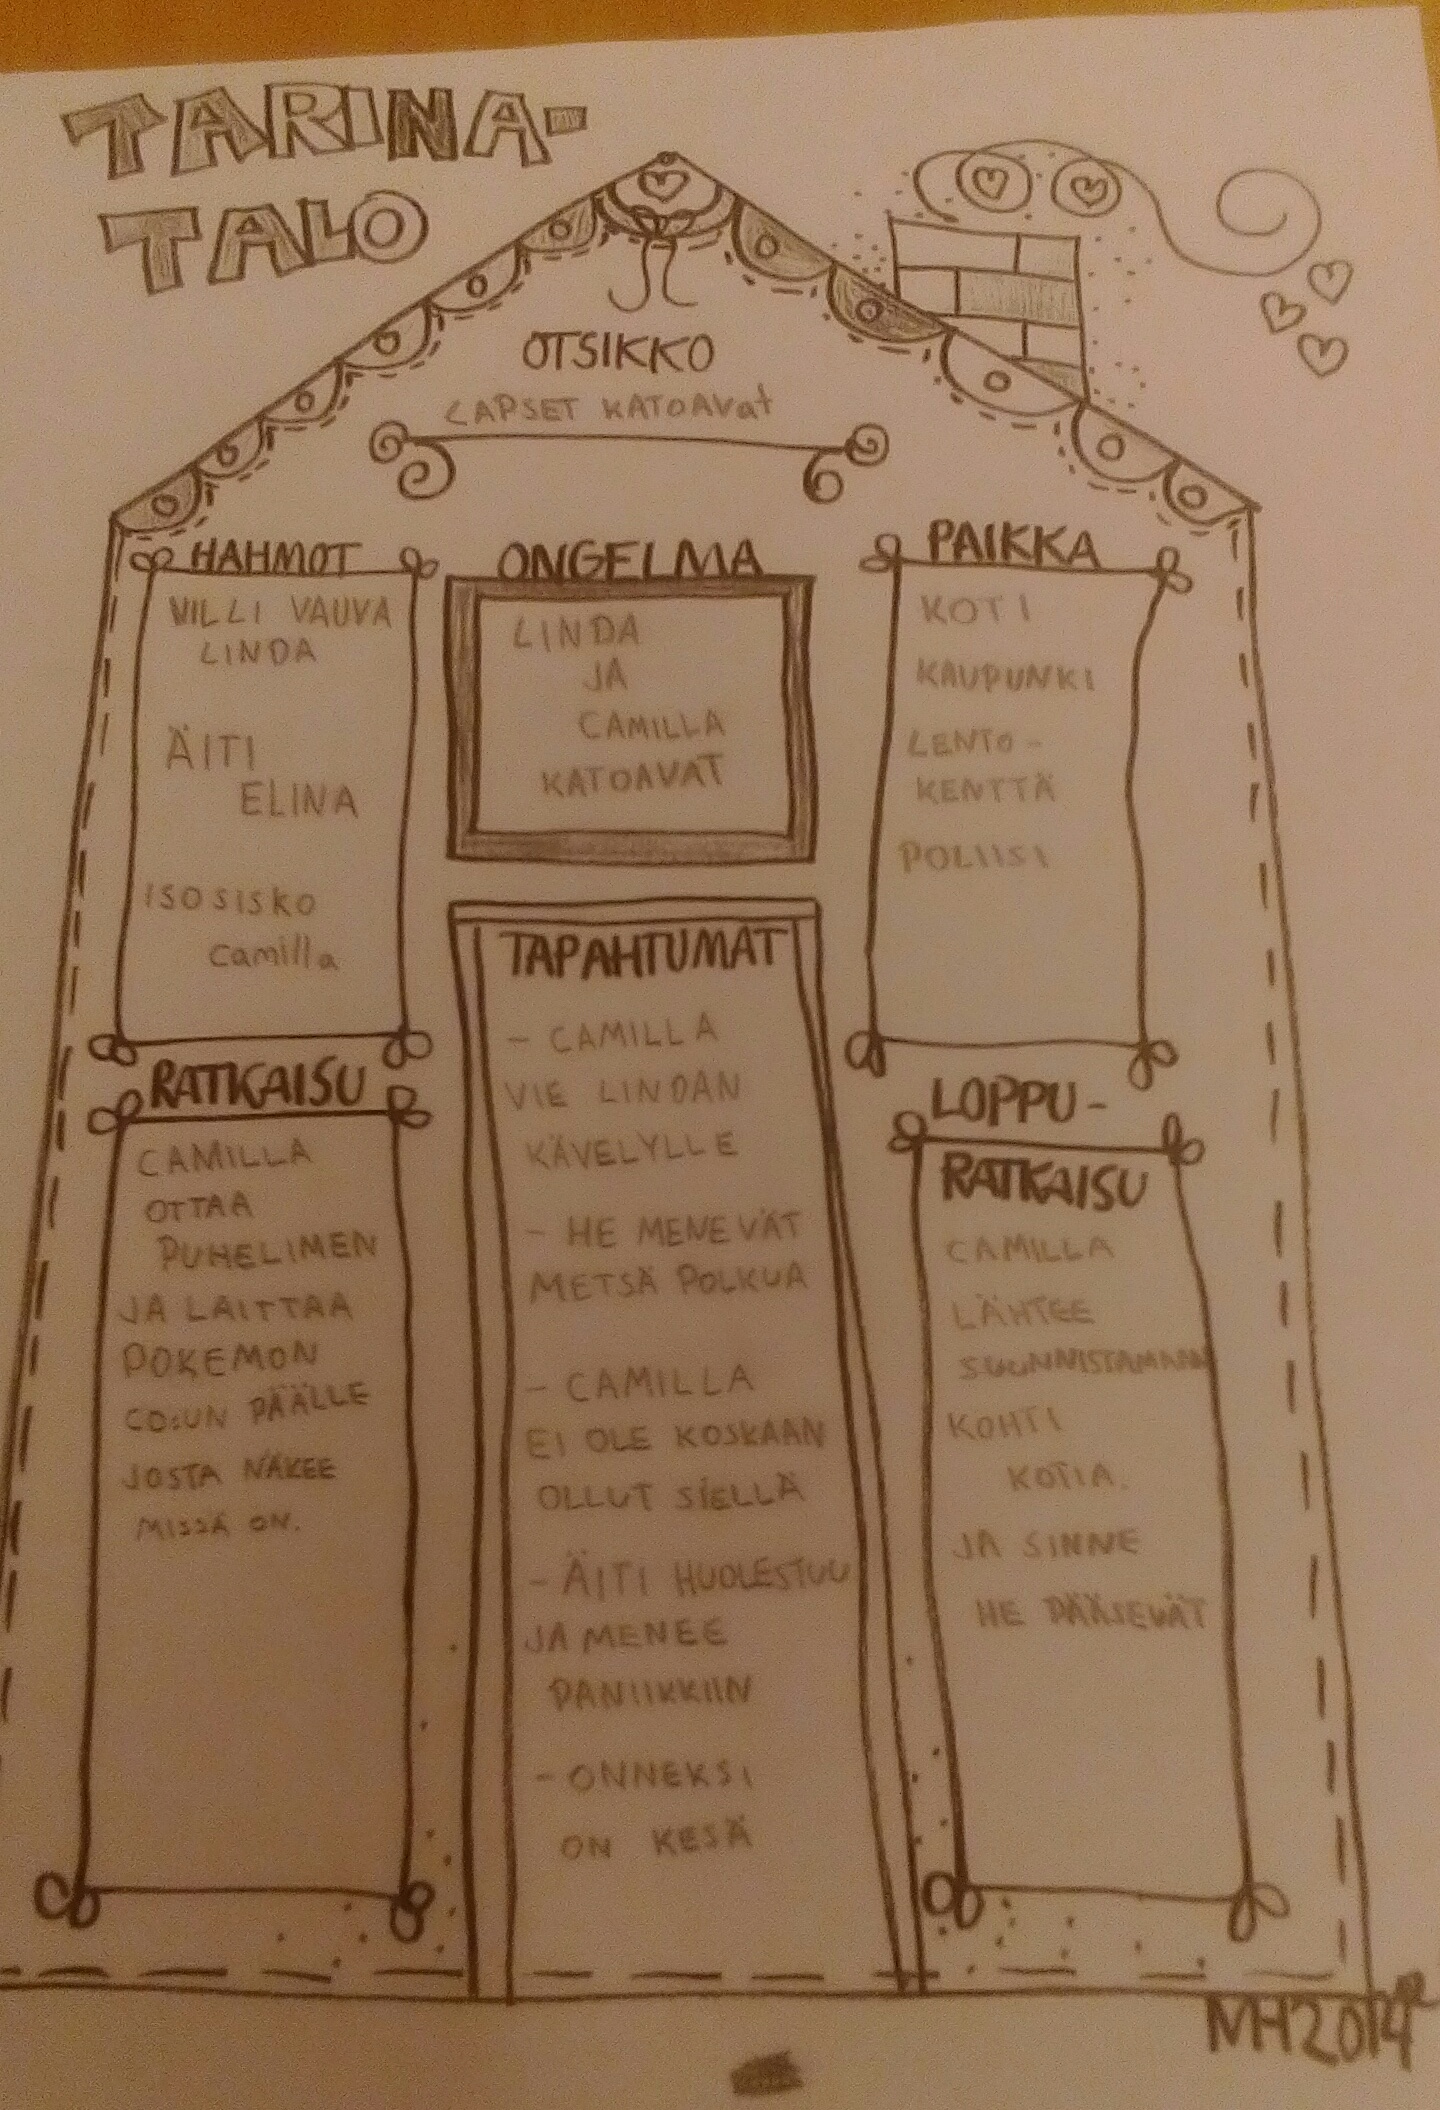 TARINA-
TALO
OTSIKKO
LAPSET KATOAVat
HAHMOT
VILLI VAUVA
LINDA
ÄITI
ELINA
ISOSISKO
camilla
ONGELMA
LINDA
JA
CAMILLA
KATOAVAT
PAIKKA
KOTI
KAUPUNKI
LENTO-
KENTTÄ
POLIISI
RATKAISU
CAMILLA
OTTAA
PUHELIMEN
JA LAITTAA
POKEMON
GO:UN PÄÄLLE
JOSTA NÄKEE
MISSÄ ON.
TAPAHTUMAT
- CAMILLA
VIE LINDAN
KÄVELYLLE
- HE MENEVÄT
METSÄ POLKUA
- CAMILLA
EI OLE KOSKAAN
OLLUT SIELLÄ
- ÄITI HUOLESTUU
JA MENEE
PANIIKKIIN
- ONNEKSI
ON KESÄ
LOPPU-
RATKAISU
CAMILLA
LÄHTEE
SUUNNISTAMAAN
KOHTI
KOTIA.
JA SINNE
HE PÄÄSEVÄT
MH2014